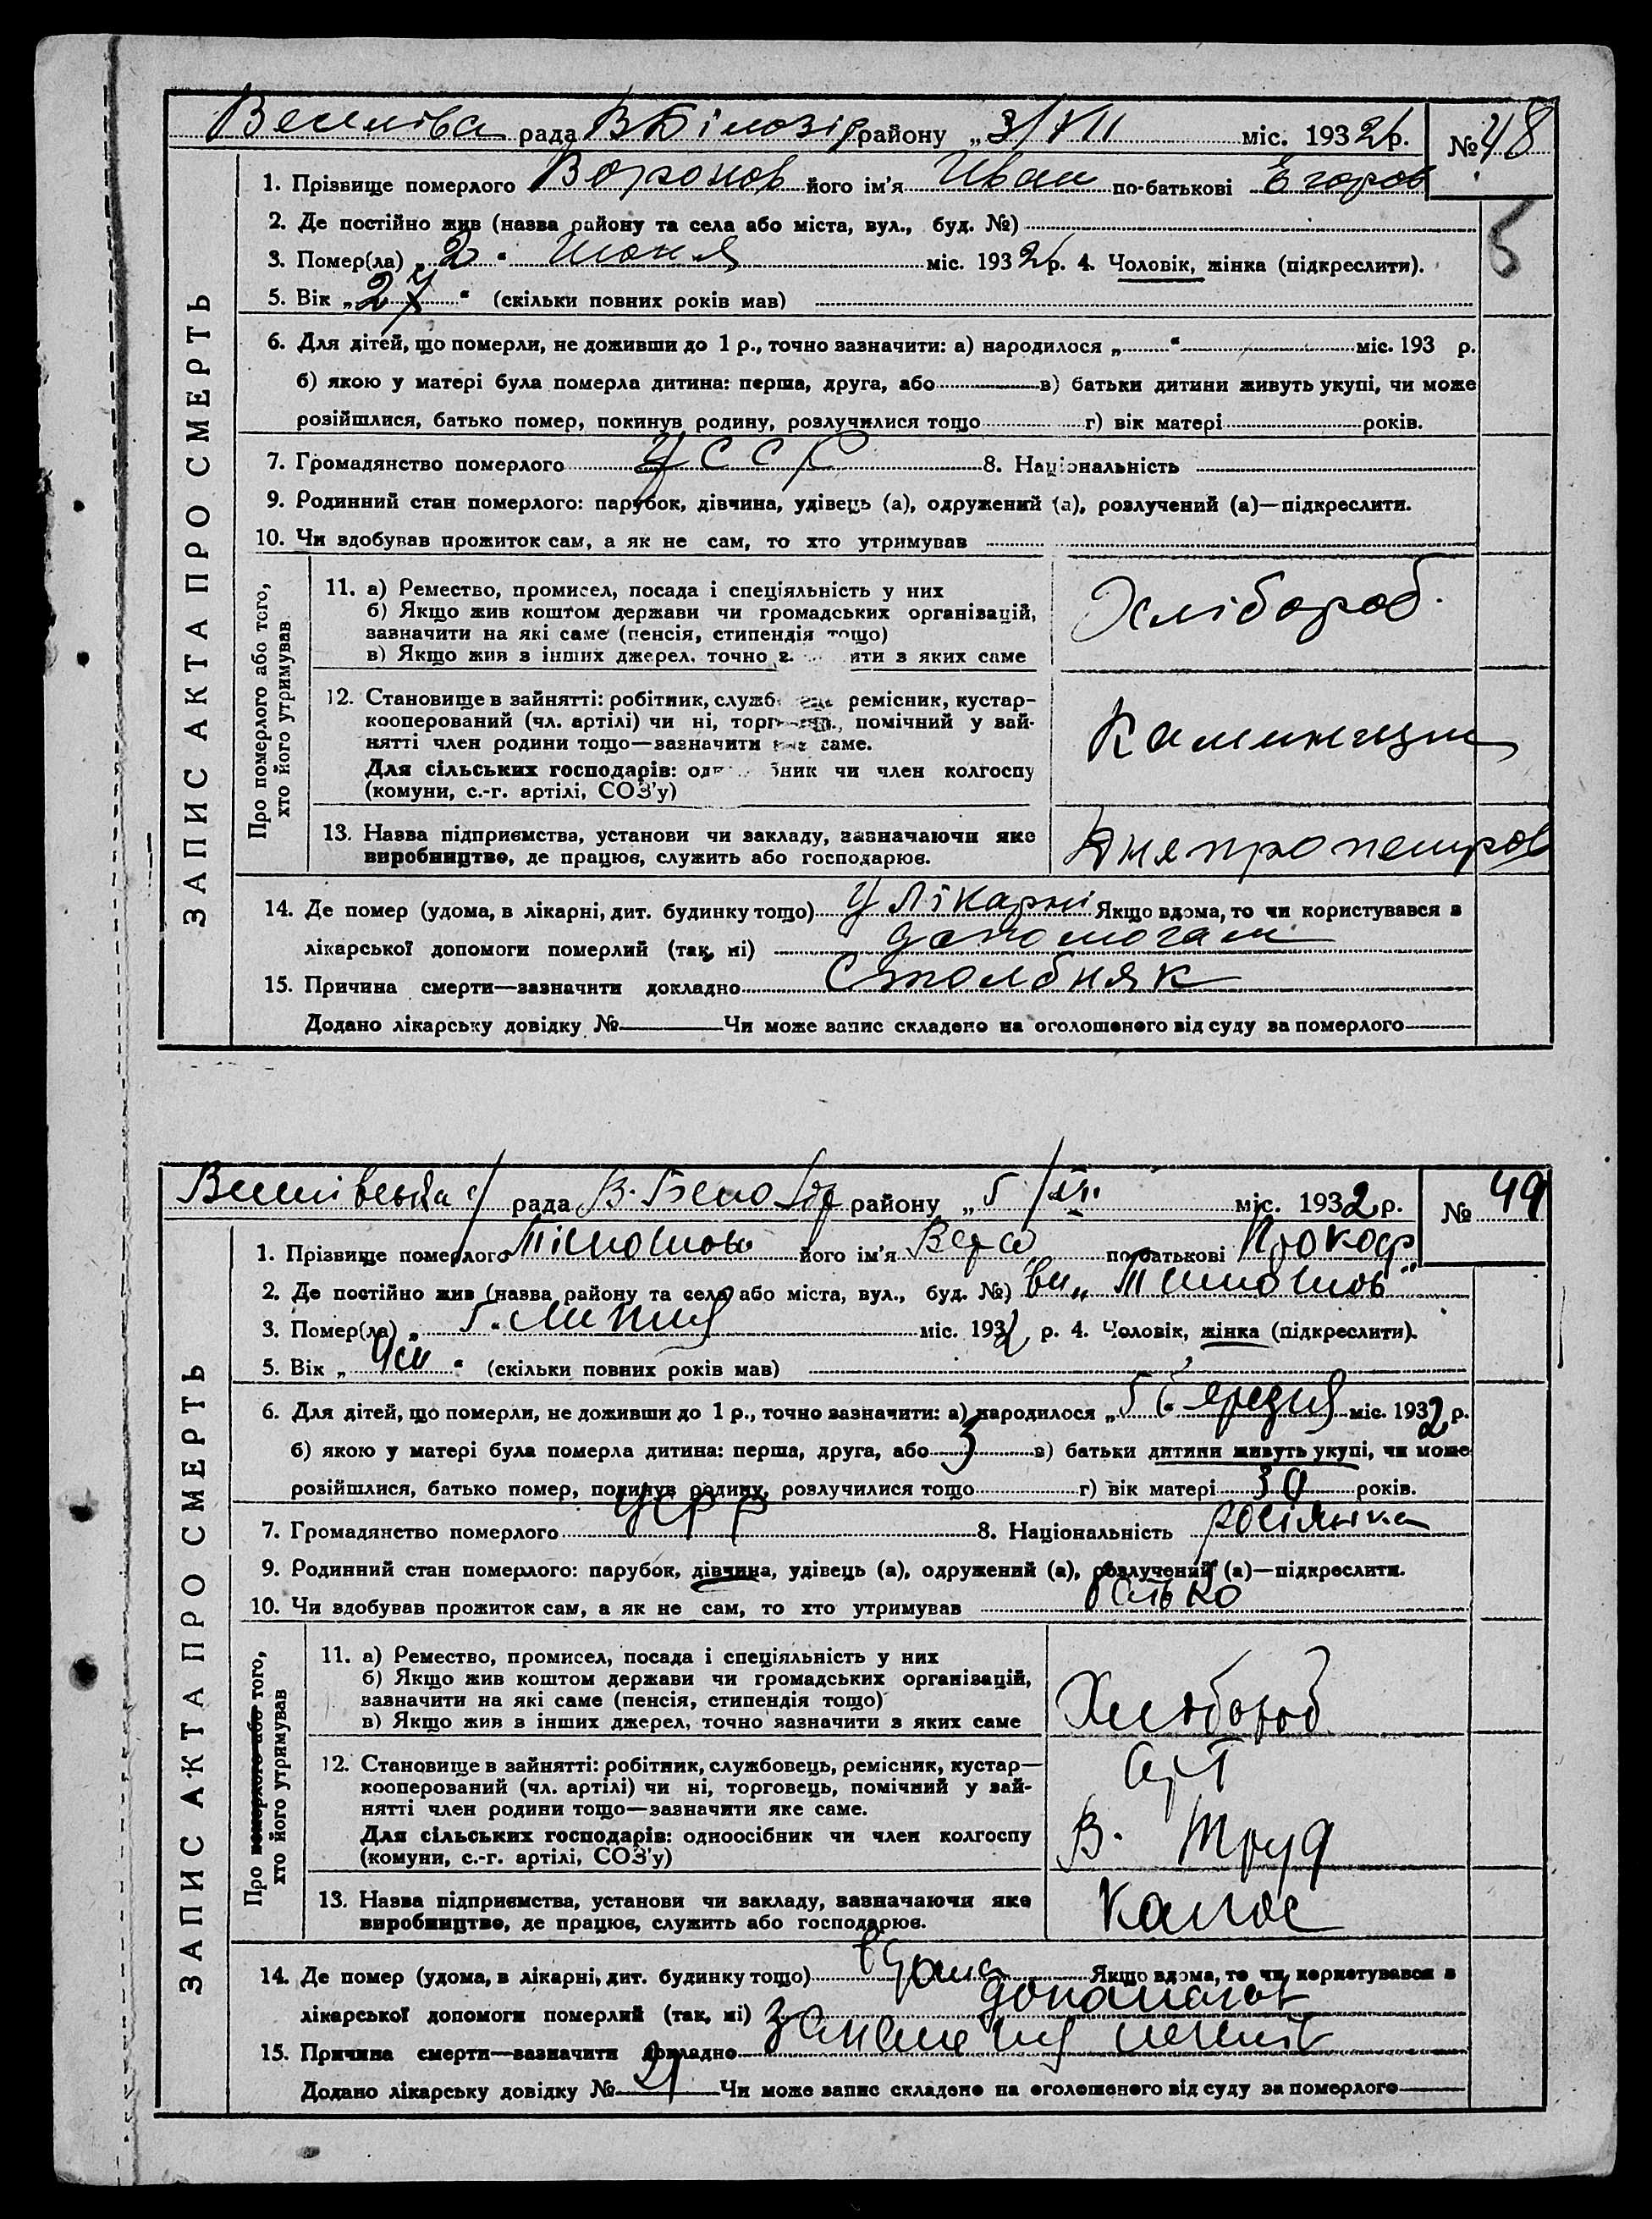 рада В Білозір району „3/VII міс. 1932 р. № 48
1. Прізвище померлого Воронов його ім'я Иван по-батькові Егоров
2. Де постійно жив (назва району та села або міста, вул., буд. №)
3. Помер(ла) „2" Июня міс. 1932 р. 4. Чоловік, жінка (підкреслити).
5. Вік „27" (скільки повних років мав)
6. Для дітей, що померли, не доживши до 1 р., точно зазначити: а) народилося „ " міс. 193 р.
б) якою у матері була померла дитина: перша, друга, або в) батьки дитини живуть укупі, чи може
розійшлися, батько помер, покинув родину, розлучилися тощо г) вік матері років.
7. Громадянство померлого УССР 8. Національність
9. Родинний стан померлого: парубок, дівчина, удівець (а), одружений (а), розлучений (а)—підкреслити.
10. Чи здобував прожиток сам, а як не сам, то хто утримував
ЗАПИС АКТА ПРО СМЕРТЬ
Про померлого або того,
хто його утримував
11. а) Ремество, промисел, посада і спеціяльність у них
б) Якщо жив коштом держави чи громадських організацій,
зазначити на які саме (пенсія, стипендія тощо)
в) Якщо жив з інших джерел, точно з ити з яких саме
Хлібороб.
12. Становище в зайнятті: робітник, служб ремісник, кустар-
кооперований (чл. артілі) чи ні, торг помічний у зай-
нятті член родини тощо—зазначити яке саме.
Для сільських господарів: од бник чи член колгоспу
(комуни, с.-г. артілі, СОЗ'у)
13. Назва підприємства, установи чи закладу, зазначаючи яке
виробництво, де працює, служить або господарює.
Дняпропетров
14. Де помер (удома, в лікарні, дит. будинку тощо) У лікарні Якщо вдома, то чи користувався з
лікарської допомоги померлий (так, ні)
15. Причина смерти—зазначити докладно Столбняк
Додано лікарську довідку № Чи може запис складено на оголошеного від суду за померлого
рада району „5/VII міс. 1932 р. № 49
1. Прізвище померлого його ім'я Вера по-батькові Прокоф
2. Де постійно жив (назва району та села або міста, вул., буд. №)
3. Помер(ла) „5" Липня міс. 1932 р. 4. Чоловік, жінка (підкреслити).
5. Вік „4м" (скільки повних років мав)
6. Для дітей, що померли, не доживши до 1 р., точно зазначити: а) народилося „5" міс. 1932 р.
б) якою у матері була померла дитина: перша, друга, або 3 в) батьки дитини живуть укупі, чи може
розійшлися, батько помер, покинув родину, розлучилися тощо г) вік матері 30 років.
7. Громадянство померлого УСРР 8. Національність росіянка
9. Родинний стан померлого: парубок, дівчина, удівець (а), одружений (а), розлучений (а)—підкреслити.
10. Чи здобував прожиток сам, а як не сам, то хто утримував батько
ЗАПИС АКТА ПРО СМЕРТЬ
Про померлого або того,
хто його утримував
11. а) Ремество, промисел, посада і спеціяльність у них
б) Якщо жив коштом держави чи громадських організацій,
зазначити на які саме (пенсія, стипендія тощо)
в) Якщо жив з інших джерел, точно зазначити з яких саме
Хлебороб
12. Становище в зайнятті: робітник, службовець, ремісник, кустар—
кооперований (чл. артілі) чи ні, торговець, помічний у зай-
нятті член родини тощо—зазначити яке саме.
Для сільських господарів: одноосібник чи член колгоспу
(комуни, с.-г. артілі, СОЗ'у)
В. Труд
13. Назва підприємства, установи чи закладу, зазначаючи яке
виробництво, де працює, служить або господарює.
14. Де помер (удома, в лікарні, дит. будинку тощо) вдома Якщо вдома, то чи користувався з
лікарської допомоги померлий (так, ні)
15. Причина смерти—зазначити докладно
Додано лікарську довідку № 21 Чи може запис складено на оголошеного від суду за померлого